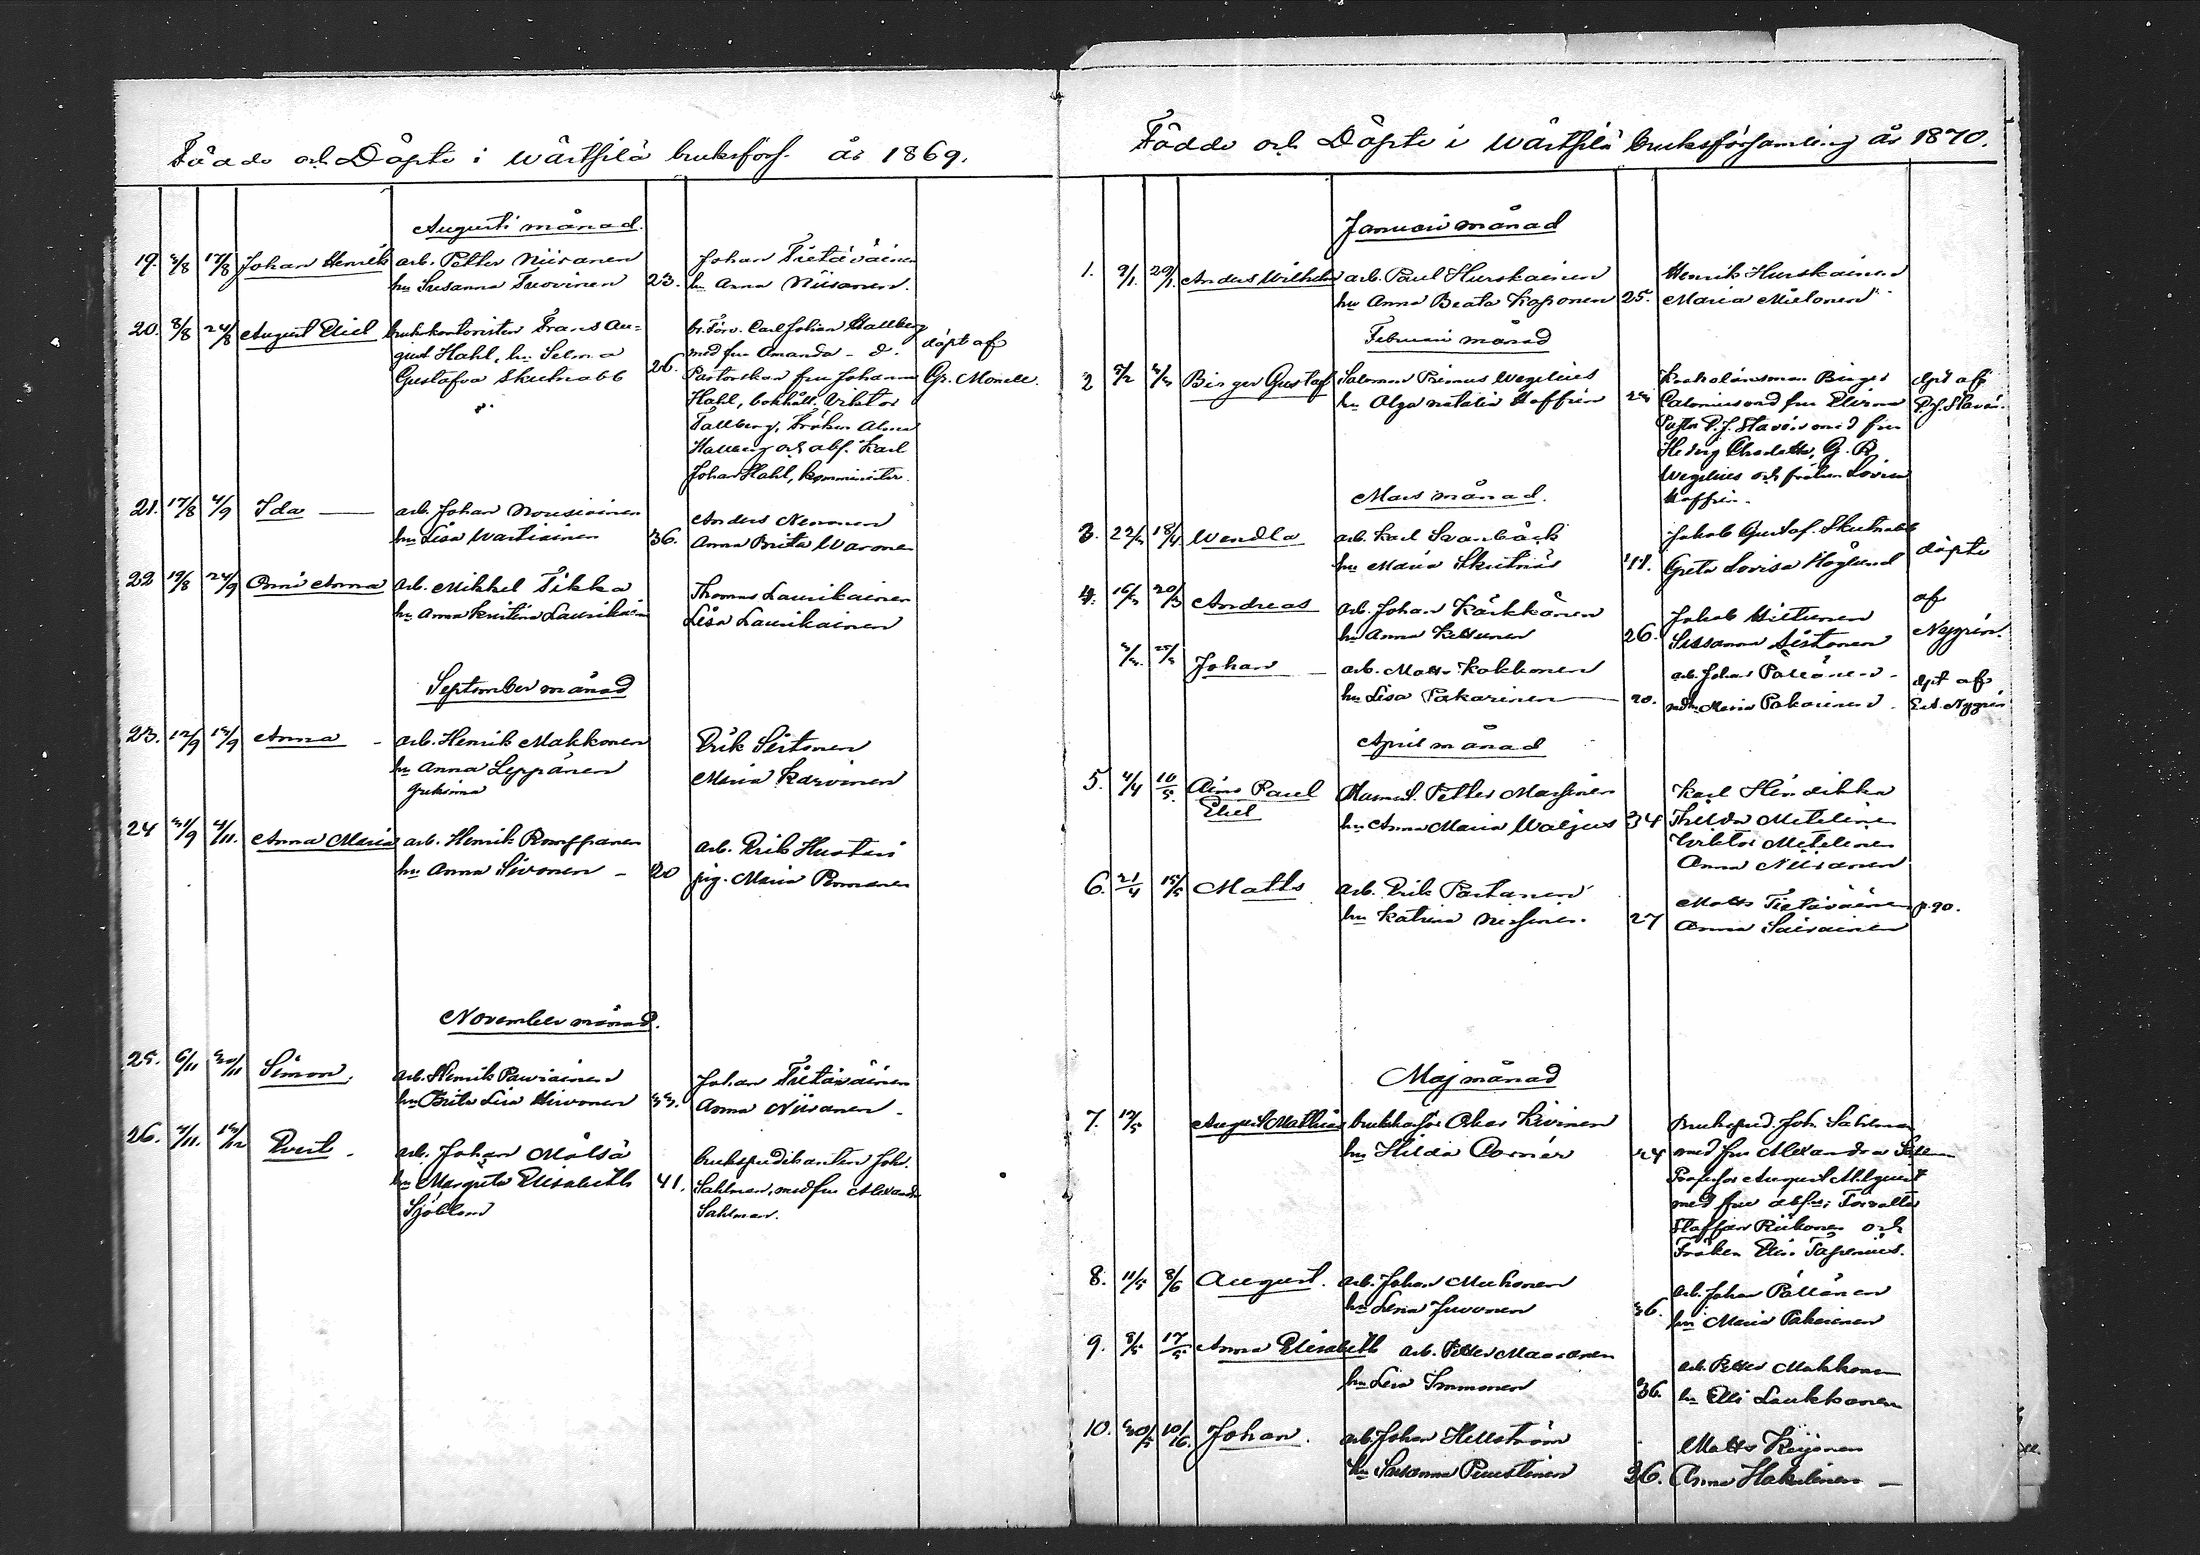 Födde och Döpte i Wärtsilä bruksförs. år 1869.
Augusti månad.
19. 3/8 17/8 Johan Henrik arb. Petter Niiranen Johan Tietäväinen
hu Susanna Turvinen 23. hu Anna Niiranen.
20. 8/8 24/8 August Eliel brukskontoristen Frans Au= br. Förv. Carl Johan Hallberg
gust Hahl, hu Selma med fru Amanda - d. döpt af
Gustafva Skutnabb 26. Pastorskan fru Johanna Gr. Monell.
Hahl, bokhåll. Viktor
Fallberg, Fröken Alma
Hallberg och abs. Karl
Johan Hahl, komminister.
21. 17/8 4/9 Ida arb. Johan Nousiainen Anders Nenonen
hu Lisa Wartiainen 36. Anna Brita Waronen
22 19/8 24/9 Anna arb. Mikkel Tikka Thomas Laurikainen
hu Anna Kristina Laurikain Lisa Laurikainen
September månad
23. 12/9 19/9 Anna - arb. Henrik Makkonen Erik Sistonen
hu Anna Leppänen Maria Karvinen
24 /9 /11. Anna Maria arb. Henrik Romppanen arb. Erik Hustari
hu Anna Sivonen - 20 pig. Maria Ronnanen
November månad.
25. 6/11 30/11 Simon. arb. Henrik Pauriainen Johan Tietäväinen
hu Brita Lisa Hirvonen 33. Anna Niiranen -
26. /11. /12 Evert - arb. Johan Målsä brukspredikanten Joh.
hu Margreta Elisabeth 41. Sahlman, med fru Alexandra
Sjöblom Sahlman.
Födde och Döpte i Wärtsilä bruksförsamling år 1870.
Januari månad
1. 9/1 29/1 Anders Wilhelm arb. Paul Hurskainen Henrik Hurskainen
hu Anna Beata Kaponen 25. Maria Mielonen
Februari månad
2 /2 Birger Gustaf Salomon Primus Wegelius Kronolänsman Birger döpt af
hu Olga Natalia Hoffrén Calonius med fru Elvina P.J. Slavén.
Past. P.J. Slavén med fru
Hedvig Charlotta, G. R.
Wegelius och fröken Lovisa
Hoffrén.
Mars månad.
3. 22/ 18/4 Wendla arb. Karl Svanbäck Jakob Gustaf Skutnabb
hu Maria Skutnäs 41. Greta Lovisa Höglund döpte
4. 16/3 20/3 Andreas arb. Johan Kärkkänen Jakob af
hu Anna 26. Susanna Sistonen Nygrén.
Johan - arb. Matts Kokkonen arb. Johan Pällänen - döpt af
hu Lisa Pakarinen 20. Maria Pakarinen. Nygrén
April månad
5. 4/4 10/5. Aino Paul Mamsl. Petter Massinen Karl Hendikka
Eliel hu Anna Maria Waljus 34 Thilda Metelinen
Viktor Metelinen
Anna Niiranen
6. 21/4 15/5 Matts arb. Erik Partanen Matts Tietäväinen p. 90.
hu Katrina Nissinen. 27 Anna Sairainen
Maj månad
7. 17/5 August Mathias Oskar Kivinen Brukspred. Joh. Sahlman
hu Hilda Corner 24 med fru Alexandra Sahlman
Professor August Ahlquist
med fru abs; Förvaltar
Staffan Riikonen och
Fröken Elin Tapenius.
8. 11/5 8/6 August. arb. Johan Muhonen arb. Johan Pällänen
hu Lena Juvonen 36. hu Maria Pakarinen
9. 8/5 17/5 Anna Elisabeth arb. Petter Maaranen arb. Petter Makkonen
hu Lisa Immonen 36. hu Elli Laukkanen
10. 30/5 10/ Johan. arb. Johan Hellström Matts Keijonen
hu Susanna Puustinen 36. Anna Hakulinen -